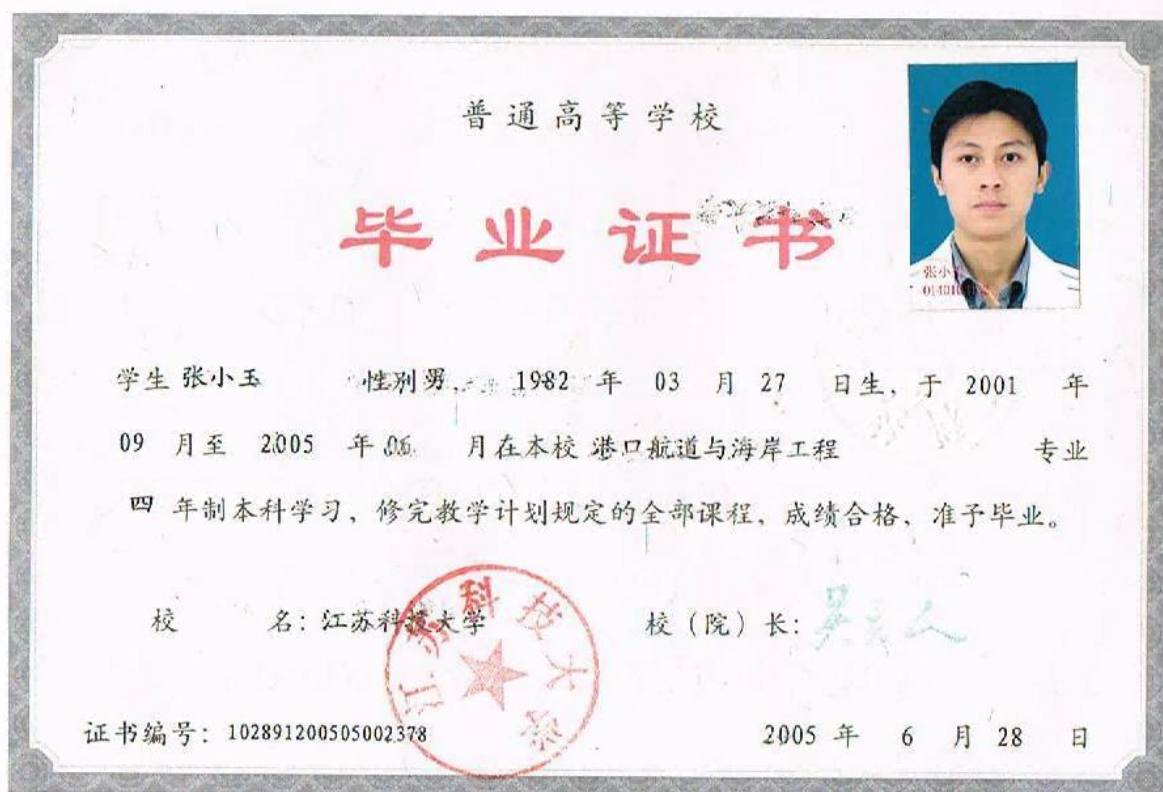 普通高等学校
毕业证书
张小
学生 张小玉 性别 男, 1982 年 03 月 27 日生, 于 2001 年
09 月至 2005 年 06 月在本校 港口航道与海岸工程 专业
四 年制本科学习、修完教学计划规定的全部课程, 成绩合格、准予毕业。
校 名: 江苏科技大学 校 (院) 长:
江苏科技大学
证书编号: 102891200505002378 2005 年 6 月 28 日